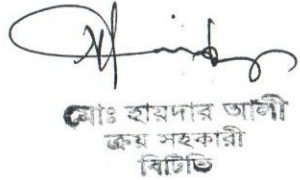 মোঃ হায়দার আলী
ক্রয় সহকারী
বিটিভি